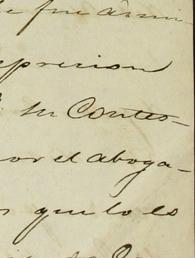 e fue á mi
presion
su Contes-
por el aboga-
s que lo es